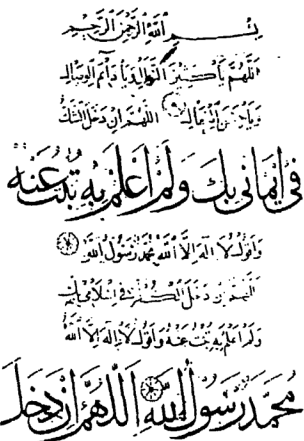 بِسْمِ اللَّهِ الرَّحْمَنِ الرَّحِيمِ
اللَّهُمَّ يَا كَثِيرَ النَّوَالِ وَيَا دَائِمَ الْوِصَالِ
وَيَا اللَّهُمَّ إِنْ دَخَلَ الشَّكُّ
فِي إِيمَانِي بِكَ وَلَمْ أَعْلَمْ بِهِ تُبْتُ عَنْهُ
وَأَقُولُ لَا إِلَهَ إِلَّا اللَّهُ مُحَمَّدٌ رَسُولُ اللَّهِ
اللَّهُمَّ إِنْ دَخَلَ الْكُفْرُ فِي إِسْلَامِي بِكَ
وَلَمْ أَعْلَمْ بِهِ تُبْتُ عَنْهُ وَأَقُولُ لَا إِلَهَ إِلَّا اللَّهُ
مُحَمَّدٌ رَسُولُ اللَّهِ اللَّهُمَّ إِنْ دَخَلَ